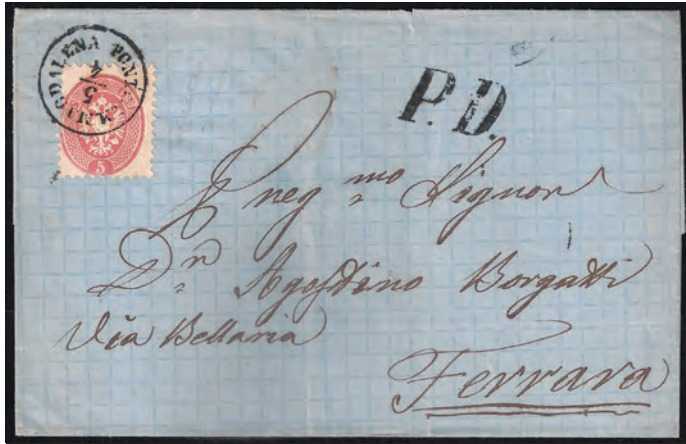 M. MAGDALENA PONT
5/4
5
P.D.
Preg.mo Signor
Dn. Agostino Borgatti
Via Bellaria
Ferrara